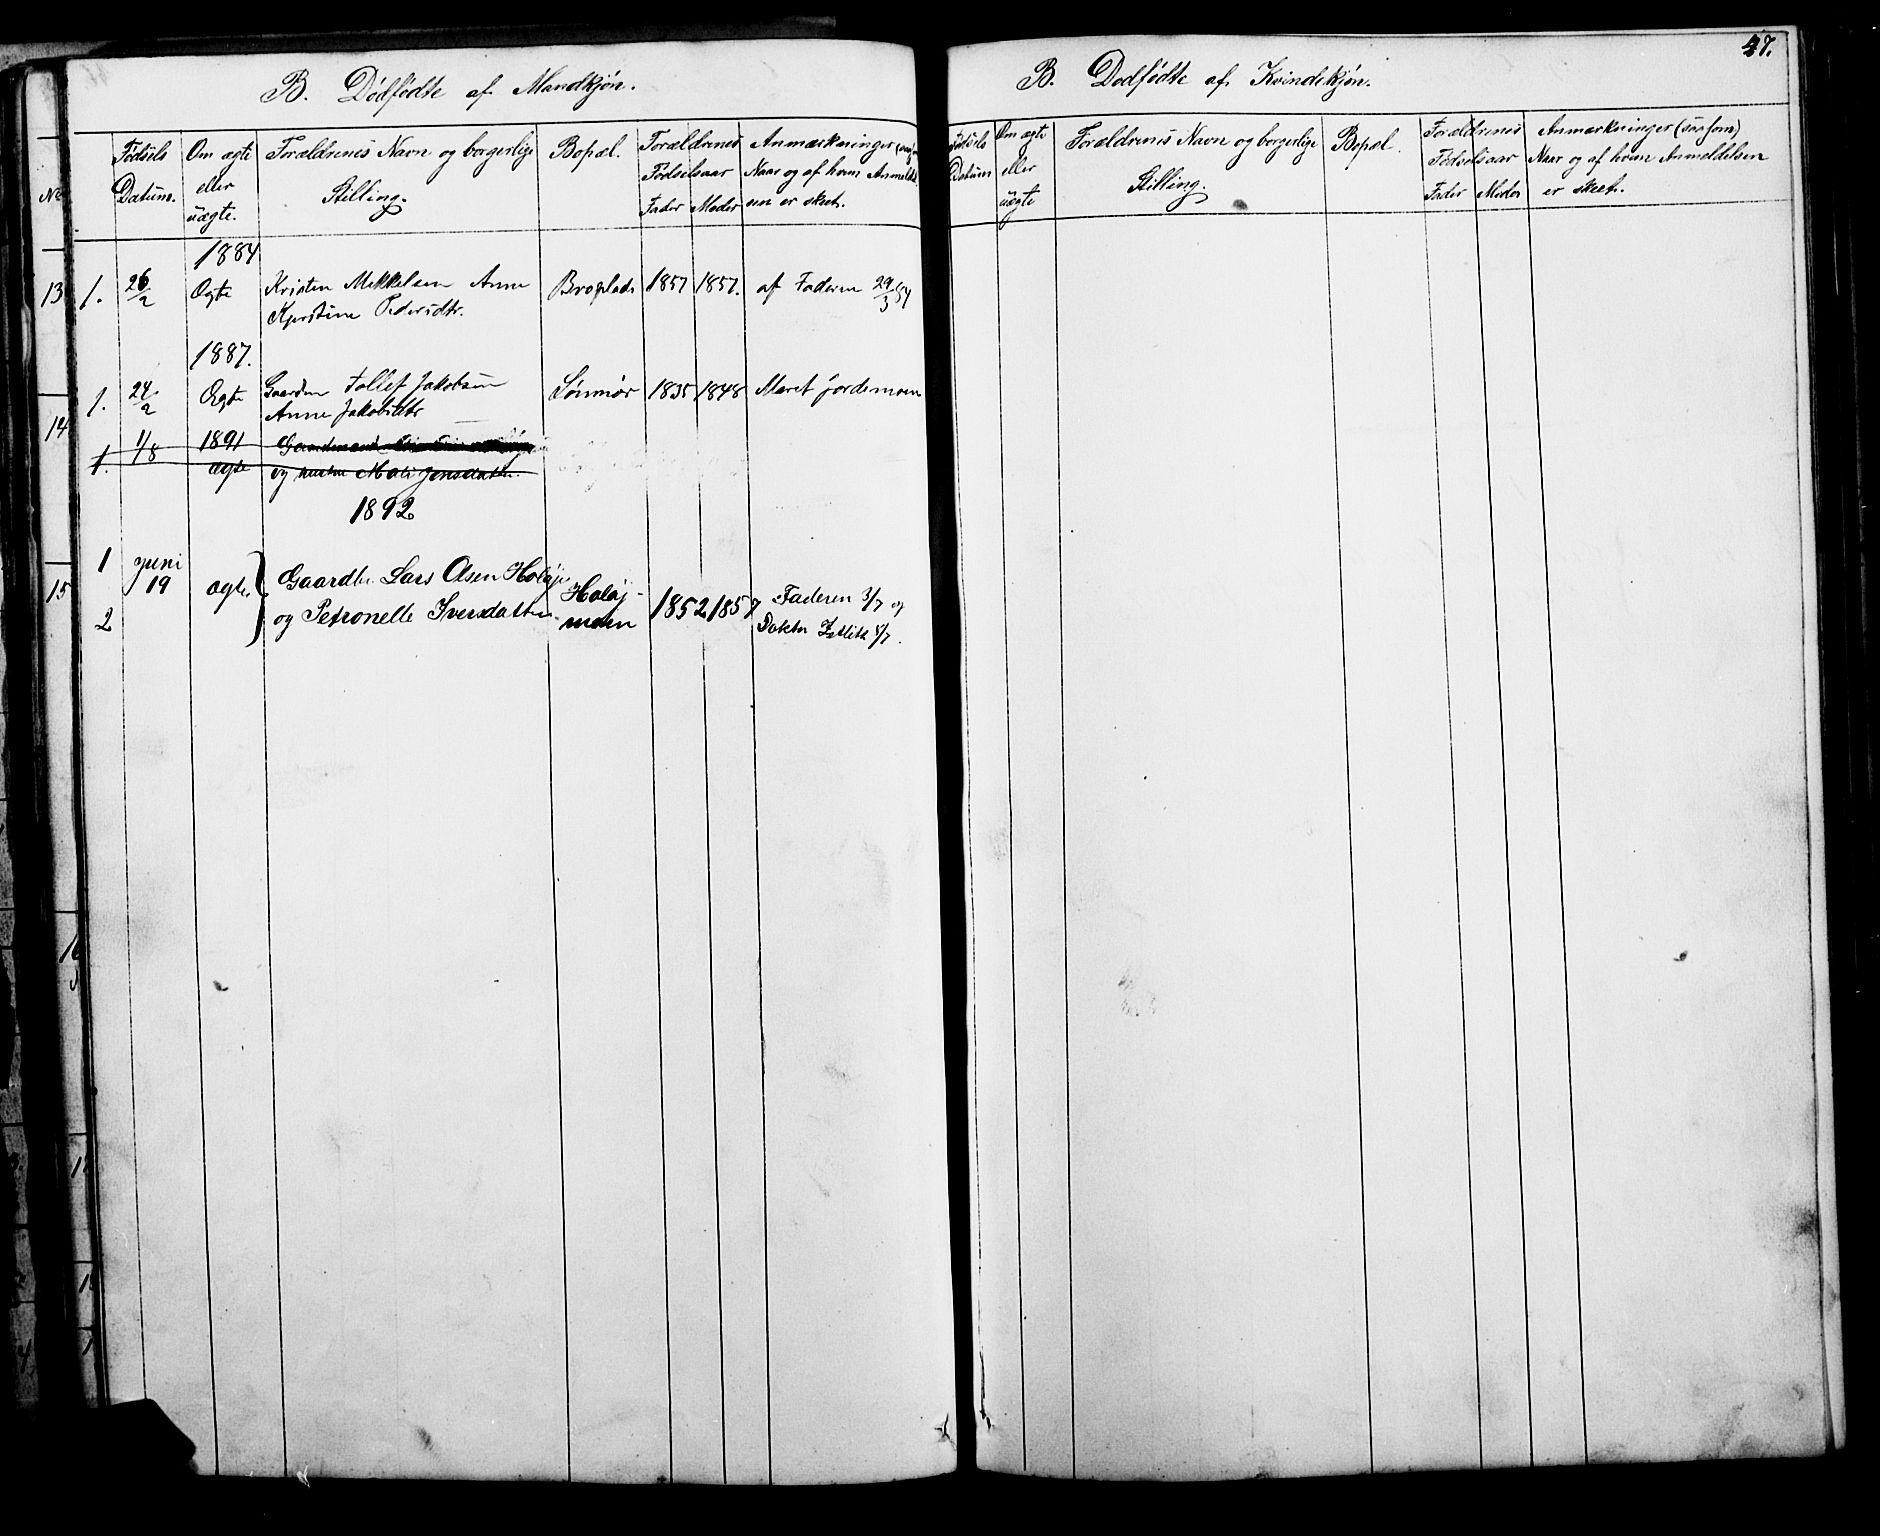 B. Dødfødte af Mandkjøn.
No
Fødsels Datum.
Om ægte eller uægte.
Forældrenes Navn og borgerlige Stilling.
Bopæl.
Forældrenes Fødselsaar
Fader Moder
Anmærkninger
Naar og af hvem Anmeldelsen er skeet.
1884
1. 26/2 Ægte Kristen Mikkelsen Anne Broplads 1857 1857. af Faderen 29/3 84
Kjerstine Pedersdtr.
1887.
1. 24/2 Ægte Gaardm Tollef Jakobsen Lønmør 1835 1848 Maret Jordemoen
Anne Jakobsdtr
1. 1/8 1891 Gaardmand
ægte og hustru Mali Jensdatter.
1892
1 Juni 19 ægte Gaardbr. Lars Olsen Holøj Holøj- 1852 1857 Faderen 3/7 og
2 og Petronelle Iversdatter moen Doktor 4/7.
13
14
15
47.
B. Dødfødte af Kvindekjøn.
Fødsels Datum
Om ægte eller uægte
Forældrenes Navn og borgerlige Stilling.
Bopæl.
Forældrenes Fødselsaar
Fader Moder
Anmærkninger (saasom)
Naar og af hvem Anmeldelsen
er skeet.